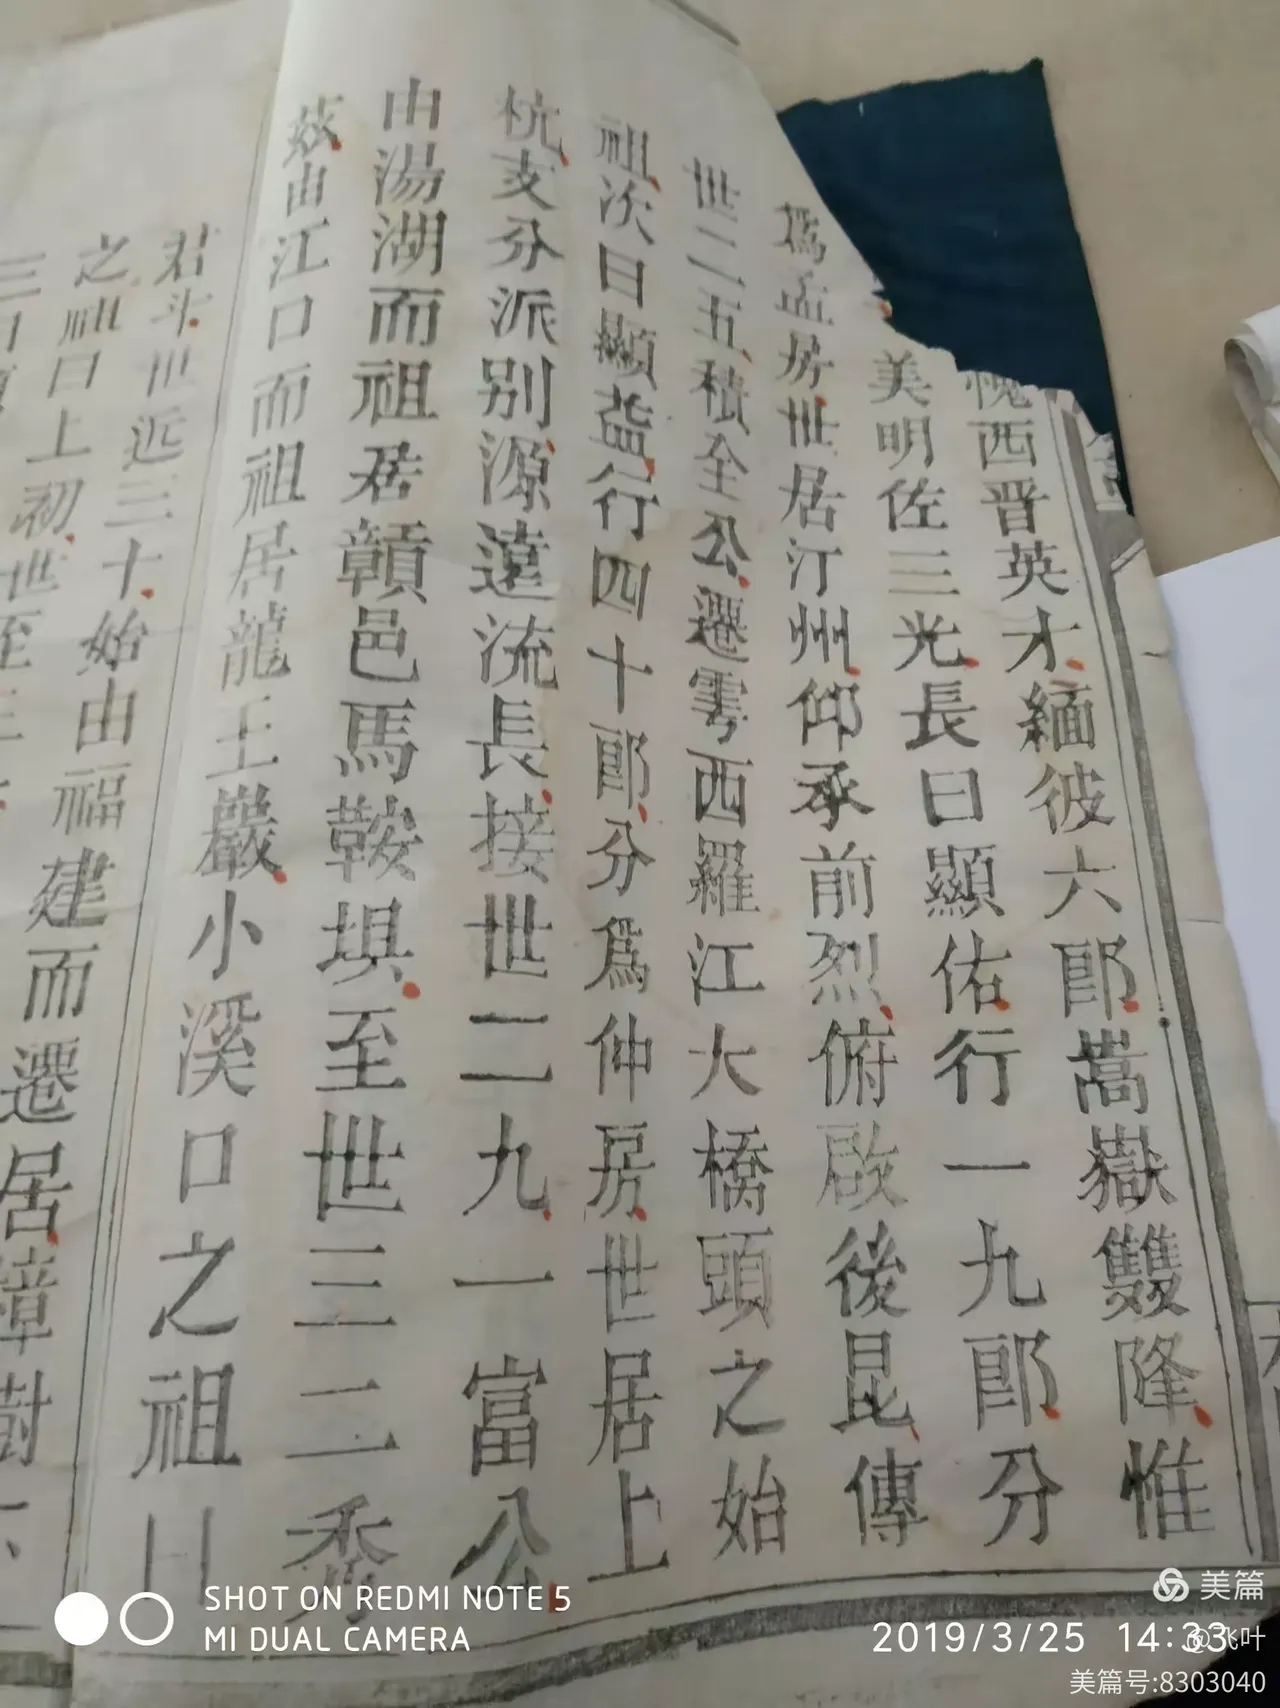 愧西晋英才緬彼六郎嵩嶽雙降惟
美明佐三光長曰顯佑行一九郎分
爲孟房世居汀州仰承前烈俯啟後昆傳
世二五積全公遷雩西羅江大橋頭之始
祖次曰顯益行四十郎分爲仲房世居上
杭支分派别源遠流長接世二九一富公
由湯湖而祖居贛邑馬鞍垻至世三二秀
兹由江口而祖居龍王巖小溪口之祖曰
君斗世近三十始由福建而遷居漳樹
之祖曰上初世至三
SHOT ON REDMI NOTE 5
MI DUAL CAMERA
2019/3/25 14:33
美篇
@飞叶
美篇号:8303040